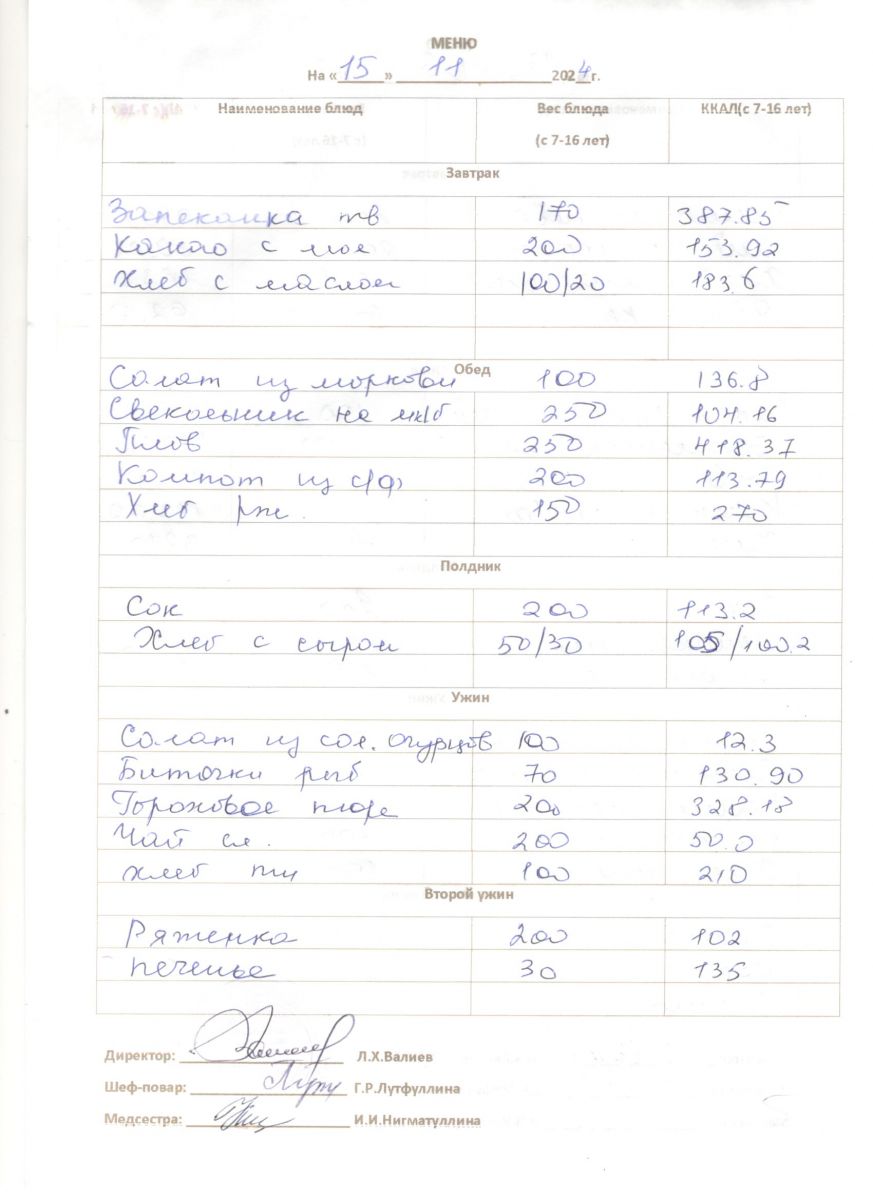 МЕНЮ
На «15» 11 2024г.
Наименование блюд Вес блюда (с 7-16 лет) ККАЛ(с 7-16 лет)
Завтрак
Запеканка тв 170 387.85
Какао с мол 200 153.92
Хлеб с маслом 100/20 183.6
Обед
Салат из моркови 100 136.8
Свекольник на мк/б 250 104.16
Плов 250 418.37
Компот из с/ф 200 113.79
Хлеб рж. 150 270
Полдник
Сок 200 113.2
Хлеб с сыром 50/30 105/100.2
Ужин
Салат из сол. огурцов 100 12.3
Биточки рыб 70 130.90
Гороховое пюре 200 328.18
Чай сл. 200 50.0
хлеб пш 100 210
Второй ужин
Ряженка 200 102
печенье 30 135
Директор: Л.Х.Валиев
Шеф-повар: Г.Р.Лутфуллина
Медсестра: И.И.Нигматуллина